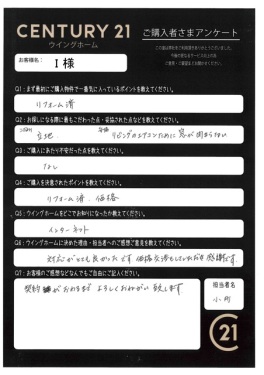 CENTURY 21
ウイングホーム
ご購入者さまアンケート
お客様名： I 様
Q1：まず最初にご購入物件で一番気に入っているポイントを教えてください。
リフォーム済
Q2：お探しになる際に最もこだわった点・妥協された点などを教えてください。
立地 リビングのエアコンために窓が閉まらない
Q3：ご購入にあたり不安だった点を教えてください。
なし
Q4：ご購入を決意されたポイントを教えてください。
リフォーム済 価格
Q5：ウイングホームをどこでお知りになったか教えてください。
インターネット
Q6：ウイングホームに決めた理由・担当者へのご感想ご意見を教えてください。
対応がとても良かったです 価格交渉もしていただき感謝です
Q7：お客様のご感想などなんでもご自由にご記入ください。
契約がおわるまで よろしくおねがい致します
担当者名
小町
C21